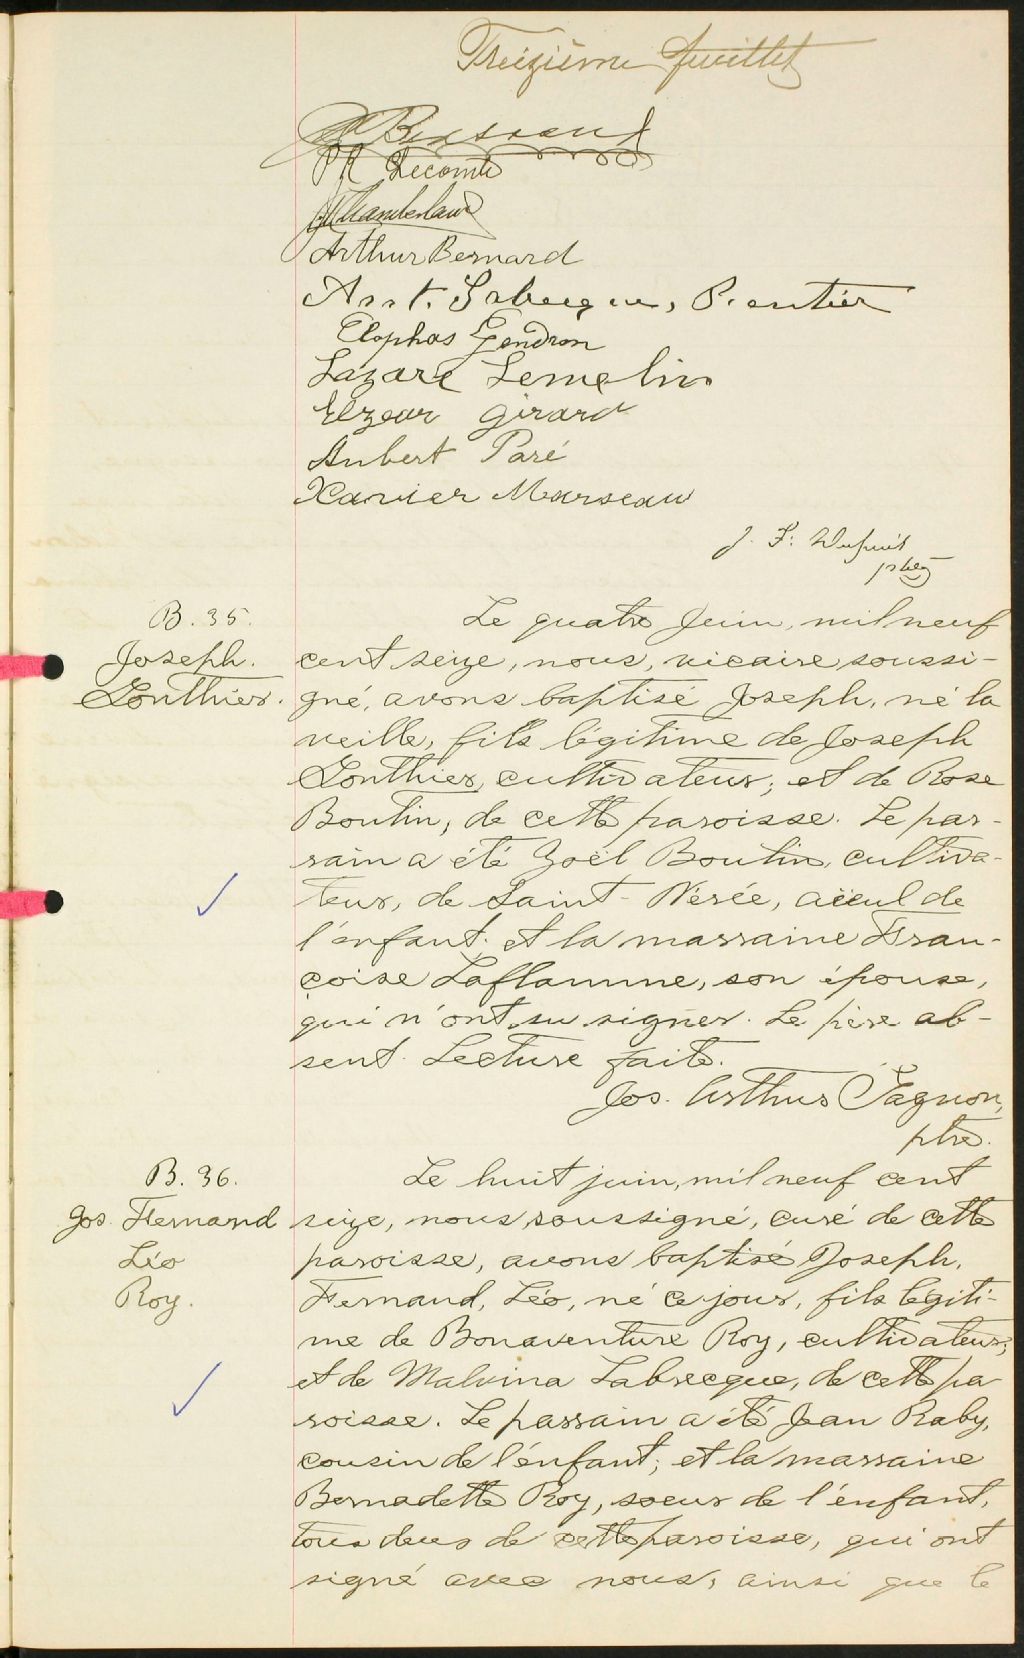 Treizième feuillet
P R Lecomte
Chamberland
Arthur Bernard
Arst. Labrecque, Rentier
Elophas Gendron
Lazare Lemelin
Elzear Girard
Aubert Paré
Xavier Marseau
J. F. Dupuis
ptre
B. 35.
Joseph.
Gonthier.
Le quatre Juin, mil neuf
cent seize, nous, vicaire soussi-
gné, avons baptisé Joseph, né la
veille, fils légitime de Joseph
Gonthier, cultivateur; et de Rose
Boutin, de cette paroisse. Le par-
rain a été Zoël Boutin, cultiva-
teur, de Saint-Nérée, aïeul de
l'enfant et la marraine Fran-
çoise Laflamme, son épouse,
qui n'ont su signer. Le père ab-
sent. Lecture faite.
Jos. Arthur Gagnon,
ptre.
B. 36.
Jos. Fernand
Léo
Roy.
Le huit juin, mil neuf cent
seize, nous soussigné, curé de cette
paroisse, avons baptisé Joseph,
Fernand, Léo, né ce jour, fils légiti-
me de Bonaventure Roy, cultivateur;
et de Malvina Labrecque, de cette pa
roisse. Le parrain a été Jean Raby,
cousin de l'enfant; et la marraine
Bernadette Roy, soeur de l'enfant,
tous deux de cette paroisse, qui ont
signé avec nous, ainsi que le